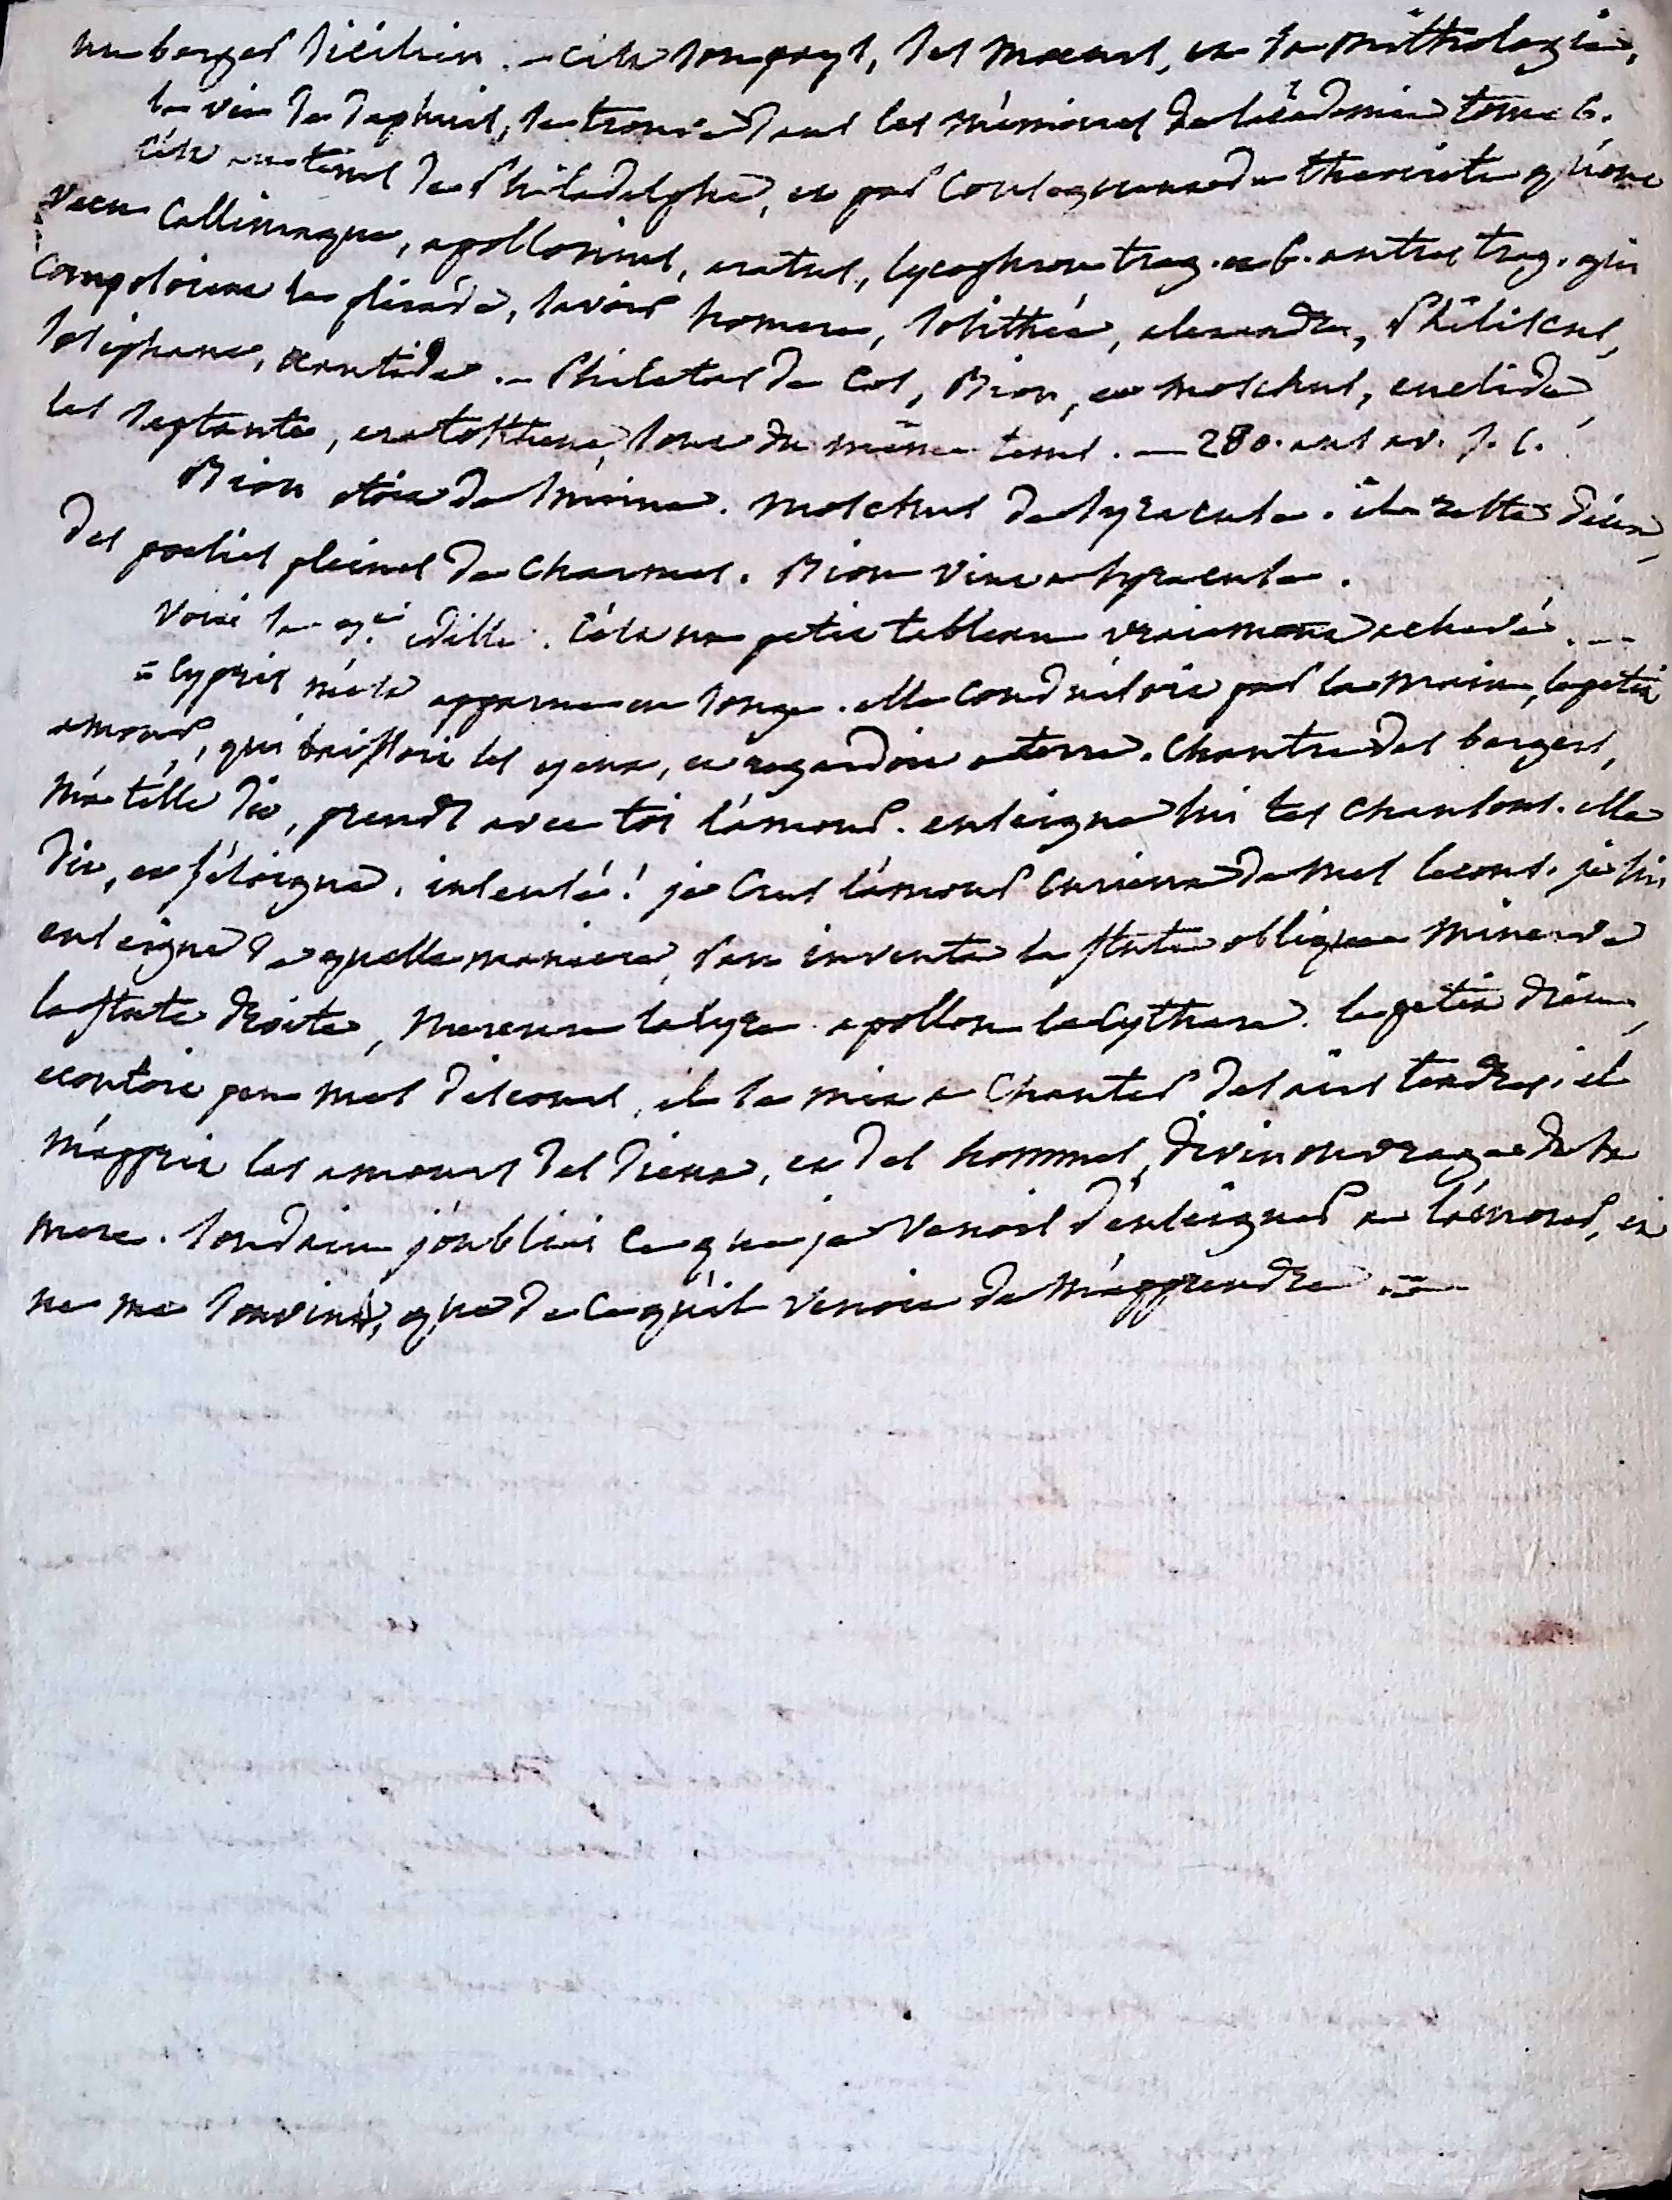 un berger sicilien. - c'est son pays, ses moeurs, et sa mithologie,
la vie de daphnis, se trouve dans les mémoires de l'académie tome 6.
c'est au tems de Philadelphe, et par consequent de theocrite qu'ont
vecu Callimaque, apollonius, aratus, lycophron trag. et 6. autres trag. qui
composoient la pleiade, savoir homere, sosithée, alexandre, Philiscus,
sosiphane, Dantide. - Philetas de Cos, Bion, et moschus, euclide,
les septante, eratosthene, sont du même tems. - 280. ans av. J. C.
Bion etoit de smirne. moschus de syracuse. il reste d'eux,
des poesies pleines de charmes. Bion vint a syracuse.
Voici la 3.e idille. C'est un petit tableau vraiment achevé. -
= Cypris m'est apparue en songe. elle conduisoit par la main, le petit
amour, qui baissoit les yeux, et regardoit a terre. Chantre des bergers,
m'a t'elle dit, prends avec toi l'amour. enseigne lui tes chansons. elle
dit, et s'éloigne. insensé! je crus l'amour curieux de mes lecons. je lui
enseigne de quelle maniere, Pan inventa la flute oblique minerve
la flute droite, mercure la lyre. apollon la cythare. le petit dieu,
ecoutoit peu mes discours, il se mit a chanter des airs tendres. il
m'apprit les amours des dieux, et des hommes, divin ouvrage de sa
mere. soudain j'oubliai ce que je venois d'enseigner a l'amour, et
ne me souvins, que de ce qu'il venoit de m'apprendre. =